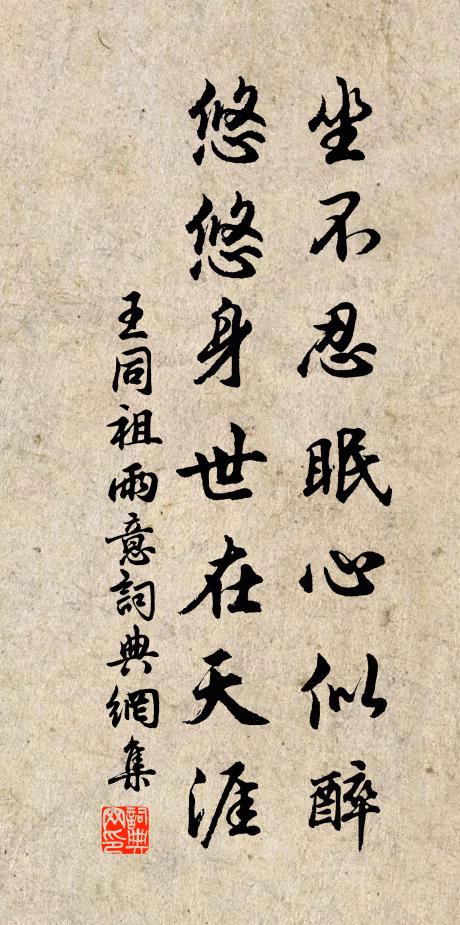 坐不忍眠心似醉
悠悠身世在天涯
王同祖雨意詞典網集
詞典网印